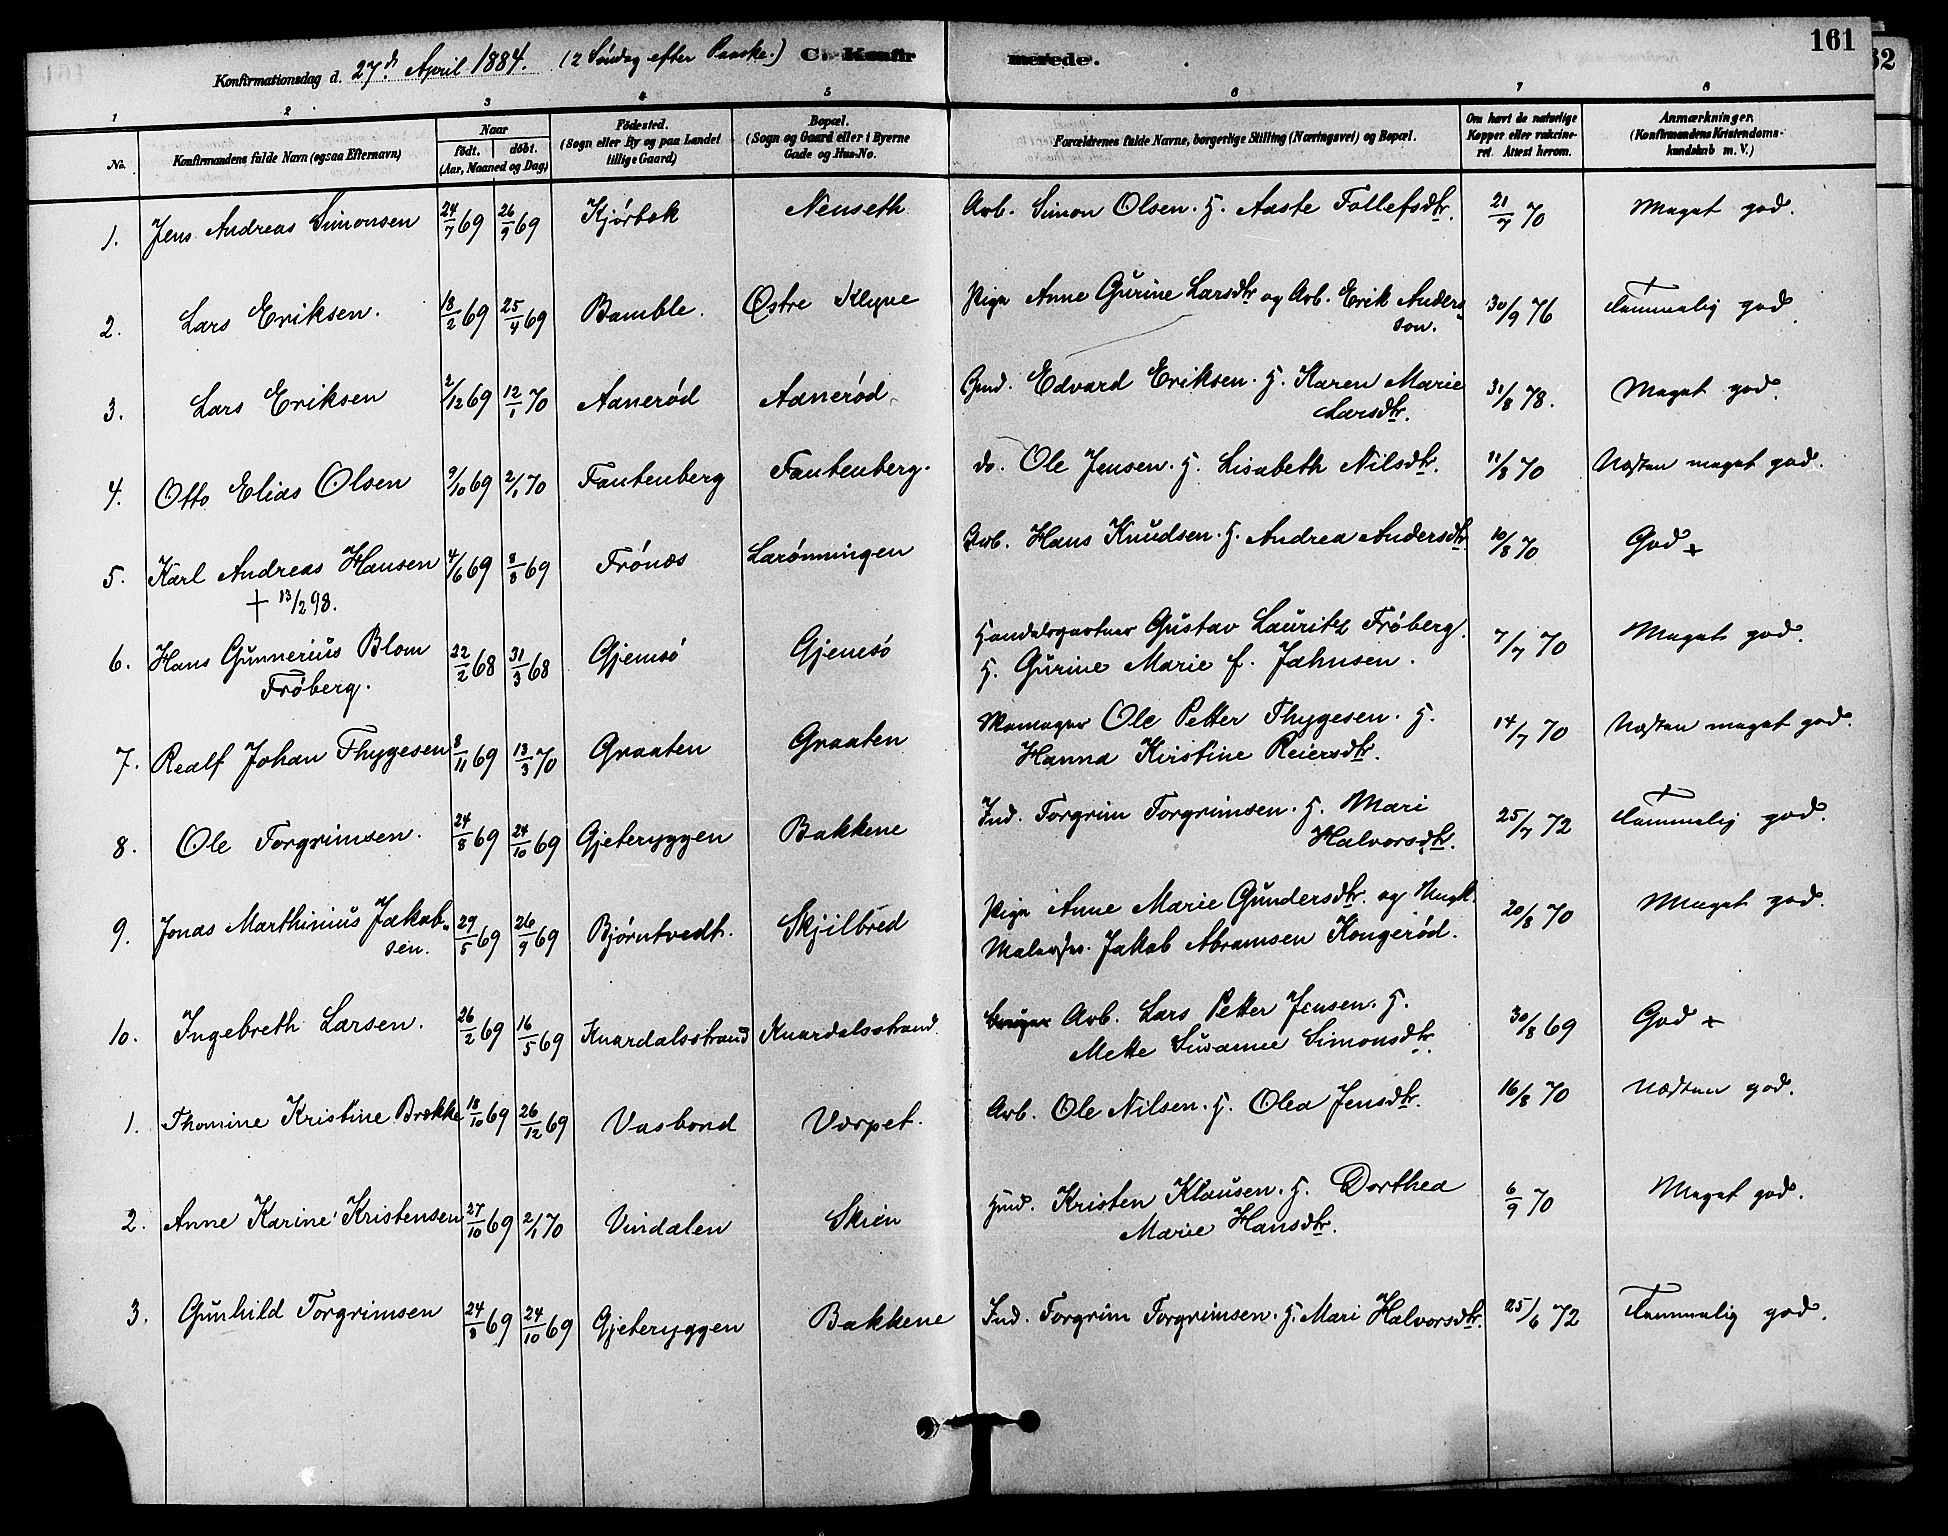 161
62
Konfirmationsdag d. 27de April 1884. (2 Söndag efter Paaske.) C. Konfirmerede.
1 2 3 4 5 6 7 8
No. Konfirmandens fulde Navn (ogsaa Efternavn) Naar födt. döbt. (Aar, Maaned og Dag) Födested. (Sogn eller By og paa Landet tillige Gaard) Bopæl. (Sogn og Gaard eller i Byerne Gade og Hus-No. Forældrenes fulde Navne, borgerlige Stilling (Næringsvei) og Bopæl. Om havt de naturlige Kopper eller vakcineret. Attest herom. Anmærkninger. (Konfirmandens Kristendomskundskab m. V.)
1. Jens Andreas Simonsen 24/7 69 26/9 69 Kjörbæk Nenseth Arb. Simon Olsen. H. Aaste Tollefsdtr. 21/7 70 Meget god.
2. Lars Eriksen. 18/2 69 25/4 69 Bamble. Østre Klyve Pige Anne Gurine Larsdtr og Arb. Erik Anders-
son. 30/9 76 Temmelig god.
3. Lars Eriksen 2/12 69 12/1 70 Aanerød Aanerød Gmd. Edvard Eriksen. H. Karen Marie
Larsdtr. 31/8 78. Meget god.
4. Otto Elias Olsen 9/10 69 2/1 70 Fantenberg Fantenberg. do. Ole Jensen. H. Lisabeth Nilsdtr. 11/8 70 Næsten meget god.
5. Karl Andreas Hansen 4/6 69 8/8 69 Frönæs Larönningen Arb. Hans Knudsen. H. Andrea Andersdtr. 10/8 70 God +
+ 13/2 98.
6. Hans Gunnerius Blom
Fröberg. 22/2 68 31/3 68 Gjemsö Gjemsö Handelsgartner Gustav Lauritz Fröberg.
H. Gurine Marie f. Jahnsen. 7/7 70 Meget god.
7. Realf Johan Thygesen 8/11 69 13/3 70 Graaten Graaten Skomager Ole Petter Thygesen. H.
Hanna Kirstine Reiersdtr. 14/7 70 Næsten meget god.
8. Ole Torgrimsen. 24/8 69 24/10 69 Gjeteryggen Bakkene Ind. Torgrim Torgrimsen. H. Mari
Halvorsdtr. 25/7 72 Temmelig god.
9. Jonas Marthinius Jakob-
sen. 29/5 69 26/9 69 Björntvedt. Skjilbred Pige Anne Marie Gundersdtr. og Ungk.
Jakob Abramsen Kongerød. 20/8 70 Meget god.
10. Ingebreth Larsen. 26/2 69 16/5 69 Knardalsstrand Knardalsstrand. Arb. Lars Petter Jensen. H.
Mette Susanne Simonsdtr. 30/8 69 God +
1. Thomine Kristine Brække 18/10 69 26/12 69 Vasbond Værpet. Arb. Ole Nilsen. H. Olea Jensdtr. 16/8 70 Næsten god.
2. Anne Karine Kristensen 27/10 69 2/1 70 Vindalen Skien Hmd. Kristen Klausen. H. Dorthea
Marie Hansdtr. 6/9 70 Meget god.
3. Gunhild Torgrimsen 24/8 69 24/10 69 Gjeteryggen Bakkene Ind. Torgrim Torgrimsen. H. Mari Halvorsdtr. 25/6 72 Temmelig god.